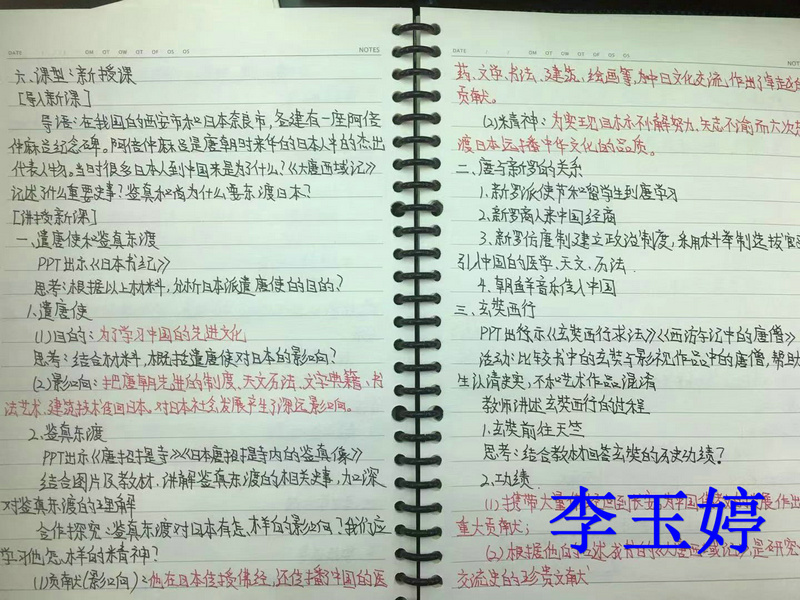 DATE
NOTES
六、课型:新授课
[导入新课]
导语:在我国的西安市和日本奈良市,各建有一座阿倍
仲麻吕纪念碑。阿倍仲麻吕是唐朝时来华的日本人中的杰出
代表人物。当时很多日本人到中国来是为了什么?《大唐西域记》
记述了什么重要史事?鉴真和尚为什么要东渡日本?
[讲授新课]
一、遣唐使和鉴真东渡
PPT出示《日本书纪》
思考:根据以上材料,分析日本派遣唐使的目的?
1.遣唐使
(1)目的:为了学习中国的先进文化
思考:结合材料,概括遣唐使对日本的影响?
(2)影响:把唐朝先进的制度、天文历法、文字典籍、书
法艺术、建筑技术传回日本。对日本社会发展产生了深远影响。
2.鉴真东渡
PPT出示《唐招提寺》《日本唐招提寺内的鉴真像》
结合图片及教材,讲解鉴真东渡的相关史事,加深
对鉴真东渡的理解
合作探究:鉴真东渡对日本有怎样的影响?我们应
学习他怎样的精神?
(1)贡献(影响):他在日本传授佛经,还传播中国的医
NOTES
药、文学、书法、建筑、绘画等,为中日文化交流作出了卓越的
贡献。
(2)精神:为实现目标不懈努力、矢志不渝而六次
渡日本传播中华文化的品质。
二、唐与新罗的关系
1.新罗派使节和留学生到唐学习
2.新罗商人来中国经商
3.新罗仿唐制建立政治制度,采用科举制选拔官
引入中国的医学、天文、历法.
4.朝鲜音乐传入中国
三、玄奘西行
PPT出示《玄奘西行求法》《西游记中的唐僧》
活动:比较书中的玄奘与影视作品中的唐僧,帮助
生认清史实,不和艺术作品混淆
教师讲述玄奘西行的过程
1.玄奘前往天竺
思考:结合教材回答玄奘的历史功绩?
2.功绩
(1)携带大量 回到长安,为中国 展作出
重大贡献;
李玉婷
(2)根据他 是研究
交流史的珍贵文献